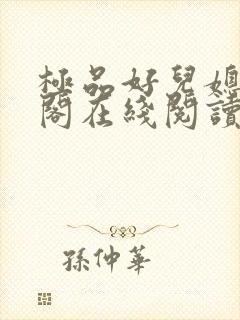 極品好兒媳
閣在綫閱讀
孫仲華